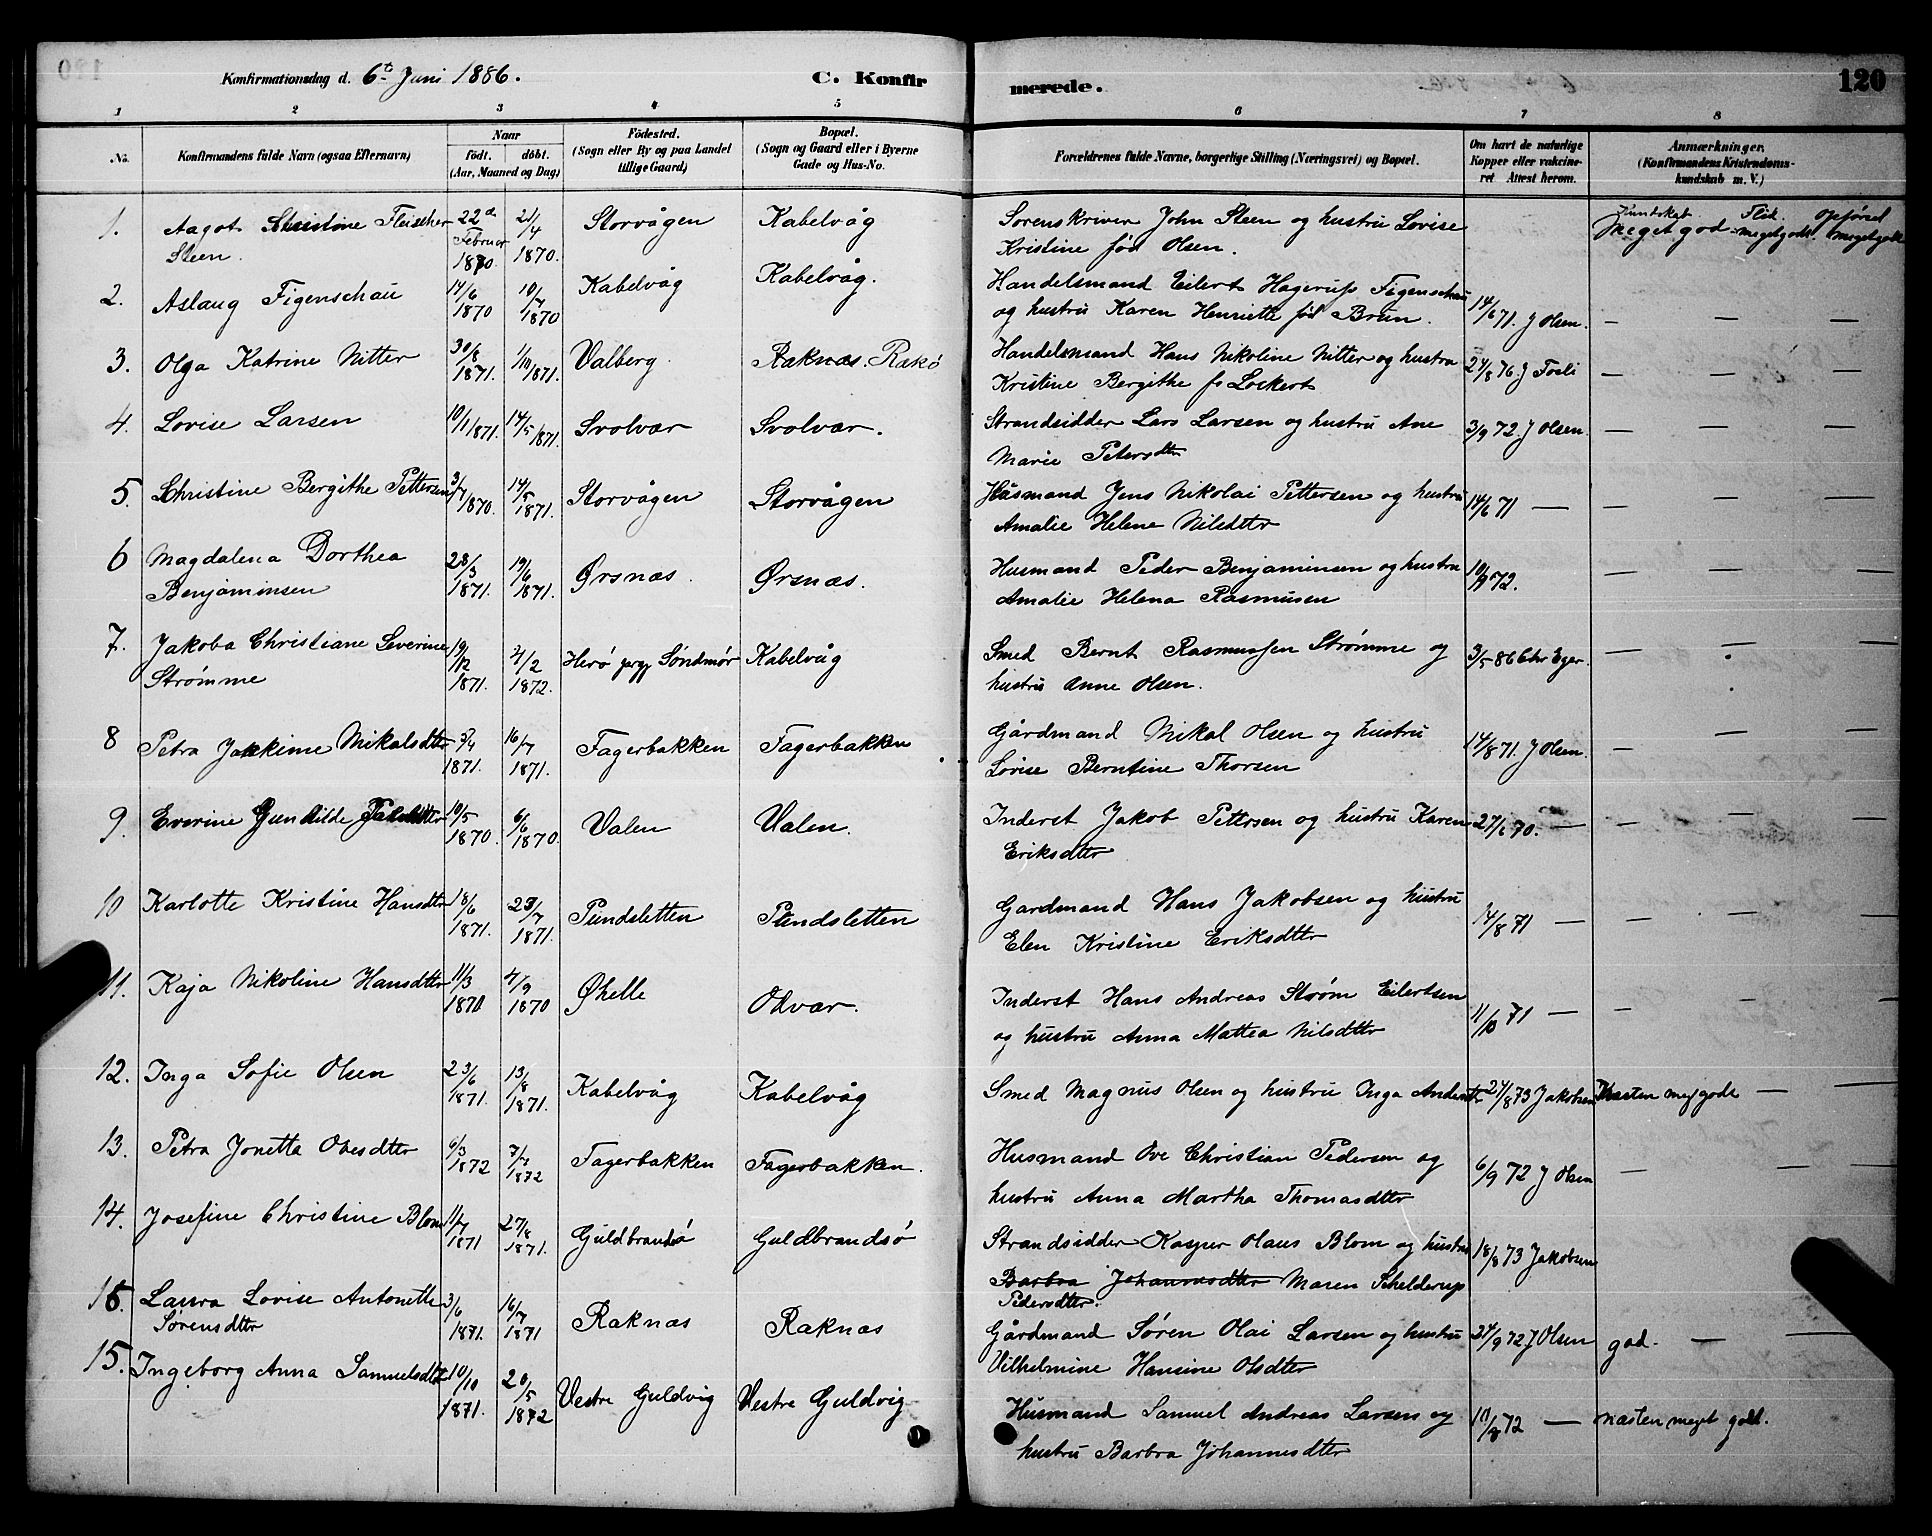 Konfirmationsdag d. 6t Juni 1886. C. Konfirmerede. 120
1 2 3 4 5 6 7 8
No. Konfirmandens fulde Navn (ogsaa Efternavn) Naar født. døbt. (Aar, Maaned og Dag) Fødested. (Sogn eller By og paa Landet tillige Gaard) Bopæl. (Sogn og Gaard eller i Byerne Gade og Hus-No. Forældrenes fulde Navne, borgerlige Stilling (Næringsvei) og Bopæl. Om havt de naturlige Kopper eller vakcineret Attest herom. Anmærkninger. (Konfirmandens Kristendomskundskab m. V.)
Kundskab Flid. Opførsel
1. Aagot Christine Fleischer Steen. 22de Februar 1870. 21/4 1870. Storvågen Kabelvåg Sorenskriver John Steen og hustru Lovise Kristine fød Olsen. Meget god meget godt. megetgodt
2. Aslaug Figenschau 14/6 1870 10/7 1870 Kabelvåg Kabelvåg. Handelsmand Eilert Hagerup Figenschau og hustru Karen Henriette fød Brun. 14/6 71. J Olsen. — — —
3. Olga Katrine Nitter 30/8 1871. 1/10 1871. Valberg. Raknæs. Rækø Handelsmand Hans Nikoline Nitter og hustru Kristine Bergithe f. Lockert 24/8 76. J Fosli — — —
4. Lovise Larsen 10/1 1871. 14/5 1871. Svolvær Svolvær. Strandsidder Lars Larsen og hustru Ane Marie Petersdtr 3/9 72. J Olsen. — — —
5. Christine Bergithe Pettersen 3/7 1870. 14/5 1871. Storvågen Storvågen Husmand Jens Nikolai Pettersen og hustru Amalie Helene Nilsdttr 14/6 71 — — — —
6 Magdalena Dorthea Benjaminsen 28/3 1871. 19/6 1871. Ørsnæs. Ørsnæs. Husmand Peder Benjaminsen og hustru Amalie Helena Rasmusen 10/9 72. — — —
7. Jakoba Christiane Severine Strømme 19/12 1871. 4/2 1872. Herø prgj Søndmør Kabelvåg Smed Bernt Rasmussen Strømme og hustru Anne Olsen. 3/5 86 Chr Eger. — — —
8 Petra Jakkime Nikalsdttr 2/4 1871. 16/7 1871. Fagerbakken Fagerbakken Gårdmand Nikal Olsen og hustru Lovise Berntine Thorsen 14/8 71. J Olsen. — — —
9. Everine Gunhilde Jakobsdttr 10/5 1870. 6/6 1870. Valen Valen. Inderst Jakob Pettersen og hustru Karen Eriksdttr 27/6 70. — — — —
10 Karlotte Kristine Hansdttr 18/6 1871. 23/7 1871. Pundsletten Pundsletten Gardmand Hans Jakobsen og hustru Elen Kristine Eriksdttr 14/8 71 — — — —
11. Kaja Nikoline Hansdttr 11/3 1870 4/9 1870 Øhelle Odvær. Inderst Hans Andreas Strøm Eilertsen og hustru Anna Mattea Nilsdttr 11/10 71 — — — —
12. Inga Sofie Olsen 23/6 1871. 13/8 1871. Kabelvåg Kabelvåg Smed Magnus Olsen og hustru Inga Andersdtr 24/8 73 Jakobsen Næsten meg godt — —
13. Petra Jonetta Ovesdttr 6/3 1872 7/7 1872 Fagerbakken Fagerbakken. Husmand Ove Christian Pedersen og hustru Anna Martha Thomasdttr 6/9 72 J Olsen — — —
14. Josefine Christine Blom 11/7 1871 27/8 1871. Guldbrandsø Guldbrandsø Strandsidder Kasper Olaus Blom og hustru Barbra Johannesdtter Maren Schelderup Pedersdtter. 18/8 73 Jakobsen
16. Laura Lovise Antonette Sørensdttr 3/6 1871. 16/7 1871 Raknæs Raknæs Gårdmand Søren Olai Larsen og hustru Vilhelmine Hansine Olsdttr 24/9 72 J Olsen god. —
15. Ingeborg Anna Samuelsdttr 10/10 1871. 20/5 1872 Vestre Guldvig Vestre Guldvig Husmand Samuel Andreas Larsen og hustru Barbra Johannesdttr 11/8 72 — næsten meget godt.